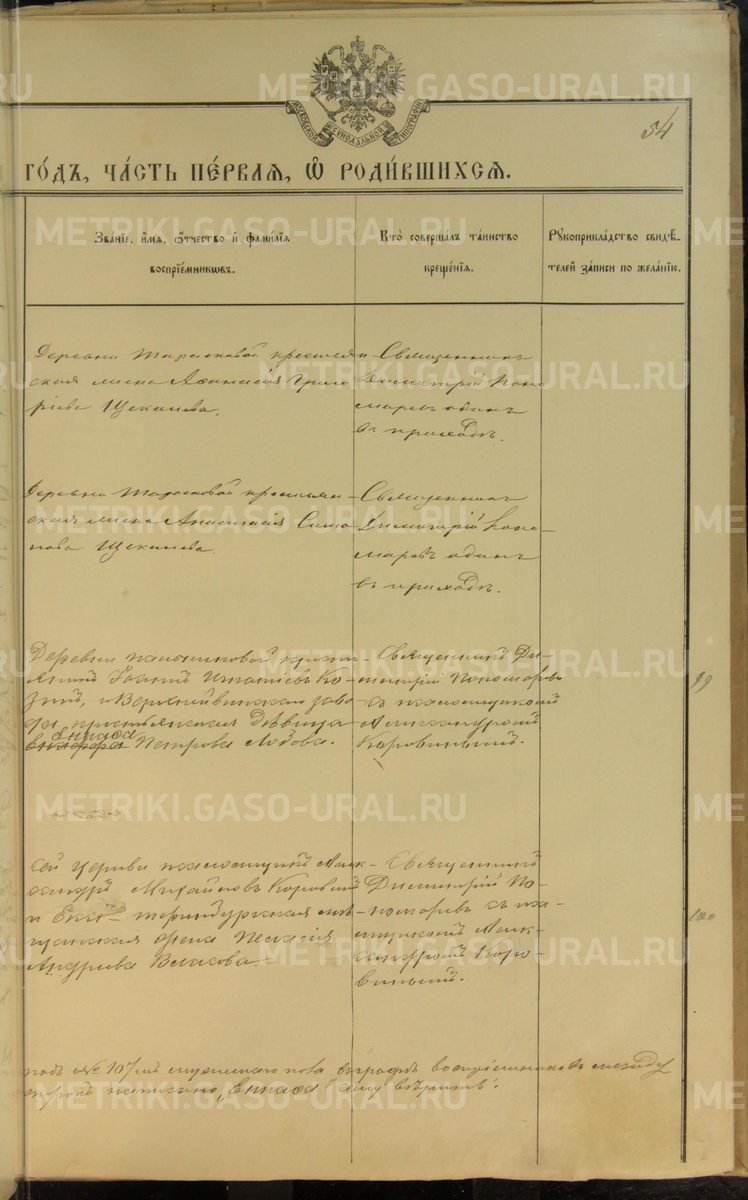 МОСКОВСКОЙ СѴНОДАЛЬНОЙ ТИПОГРАФІИ
54
ГО́ДЪ, ЧА́СТЬ ПЕ́РВАѦ, Ѽ РОДИ́ВШИХСѦ.
Зва́нїе, и҆́мѧ, ѻ҆́тчество и҆ фами́лїѧ
воспрїе́мникѡвъ.
Кто̀ соверша́лъ та́инство
креще́нїѧ.
Рꙋкоприкла́дство свидѣ́-
телей за́писи по жела́нїю.
Деревни крестьян
ская жена Афанасія Григо
ріева Щекалева.
Священникъ
Димитрій Поно
маревъ одинъ
въ приходѣ.
Деревни крестьян-
ская жена Анастасія Симо
нова Щекалева.
Священникъ
Димитрій Поно-
маревъ одинъ
въ приходѣ.
Деревни крестья-
нинъ Іоаннъ Игнатіевъ Ко-
зинъ, и Верхнейвинскаго заво
да крестьянская дѣвица
Еннафа
Петрова Лодова.
Священникъ Ди-
митрій Пономаревъ
съ псаломщикомъ
Александромъ
Коровинымъ.
99
сей церкви псаломщикъ Алек-
сандръ Михайловъ Коровинъ
и Ека- теринбургская мѣ-
щанская жена Пелагія
Андреева Власова.
Священникъ
Димитрій По-
номаревъ съ пса-
ломщикомъ Алек-
сандромъ Коро-
винымъ.
100
подъ № 107мъ женскаго пола въ графѣ воспріемниковъ между
строкъ написано „Еннафа" чему вѣрить.
METRIKI.GASO-URAL.RU